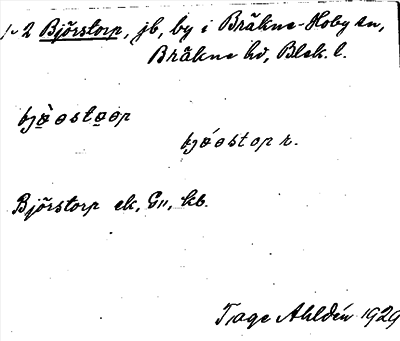 1-2 Björstorp, jb, by i Bräkne-Hoby sn,
Bräkne hd, Blek. l.
bjöstop r.
Björstorp ek, G11, kb.
Tage Ahldén 1929